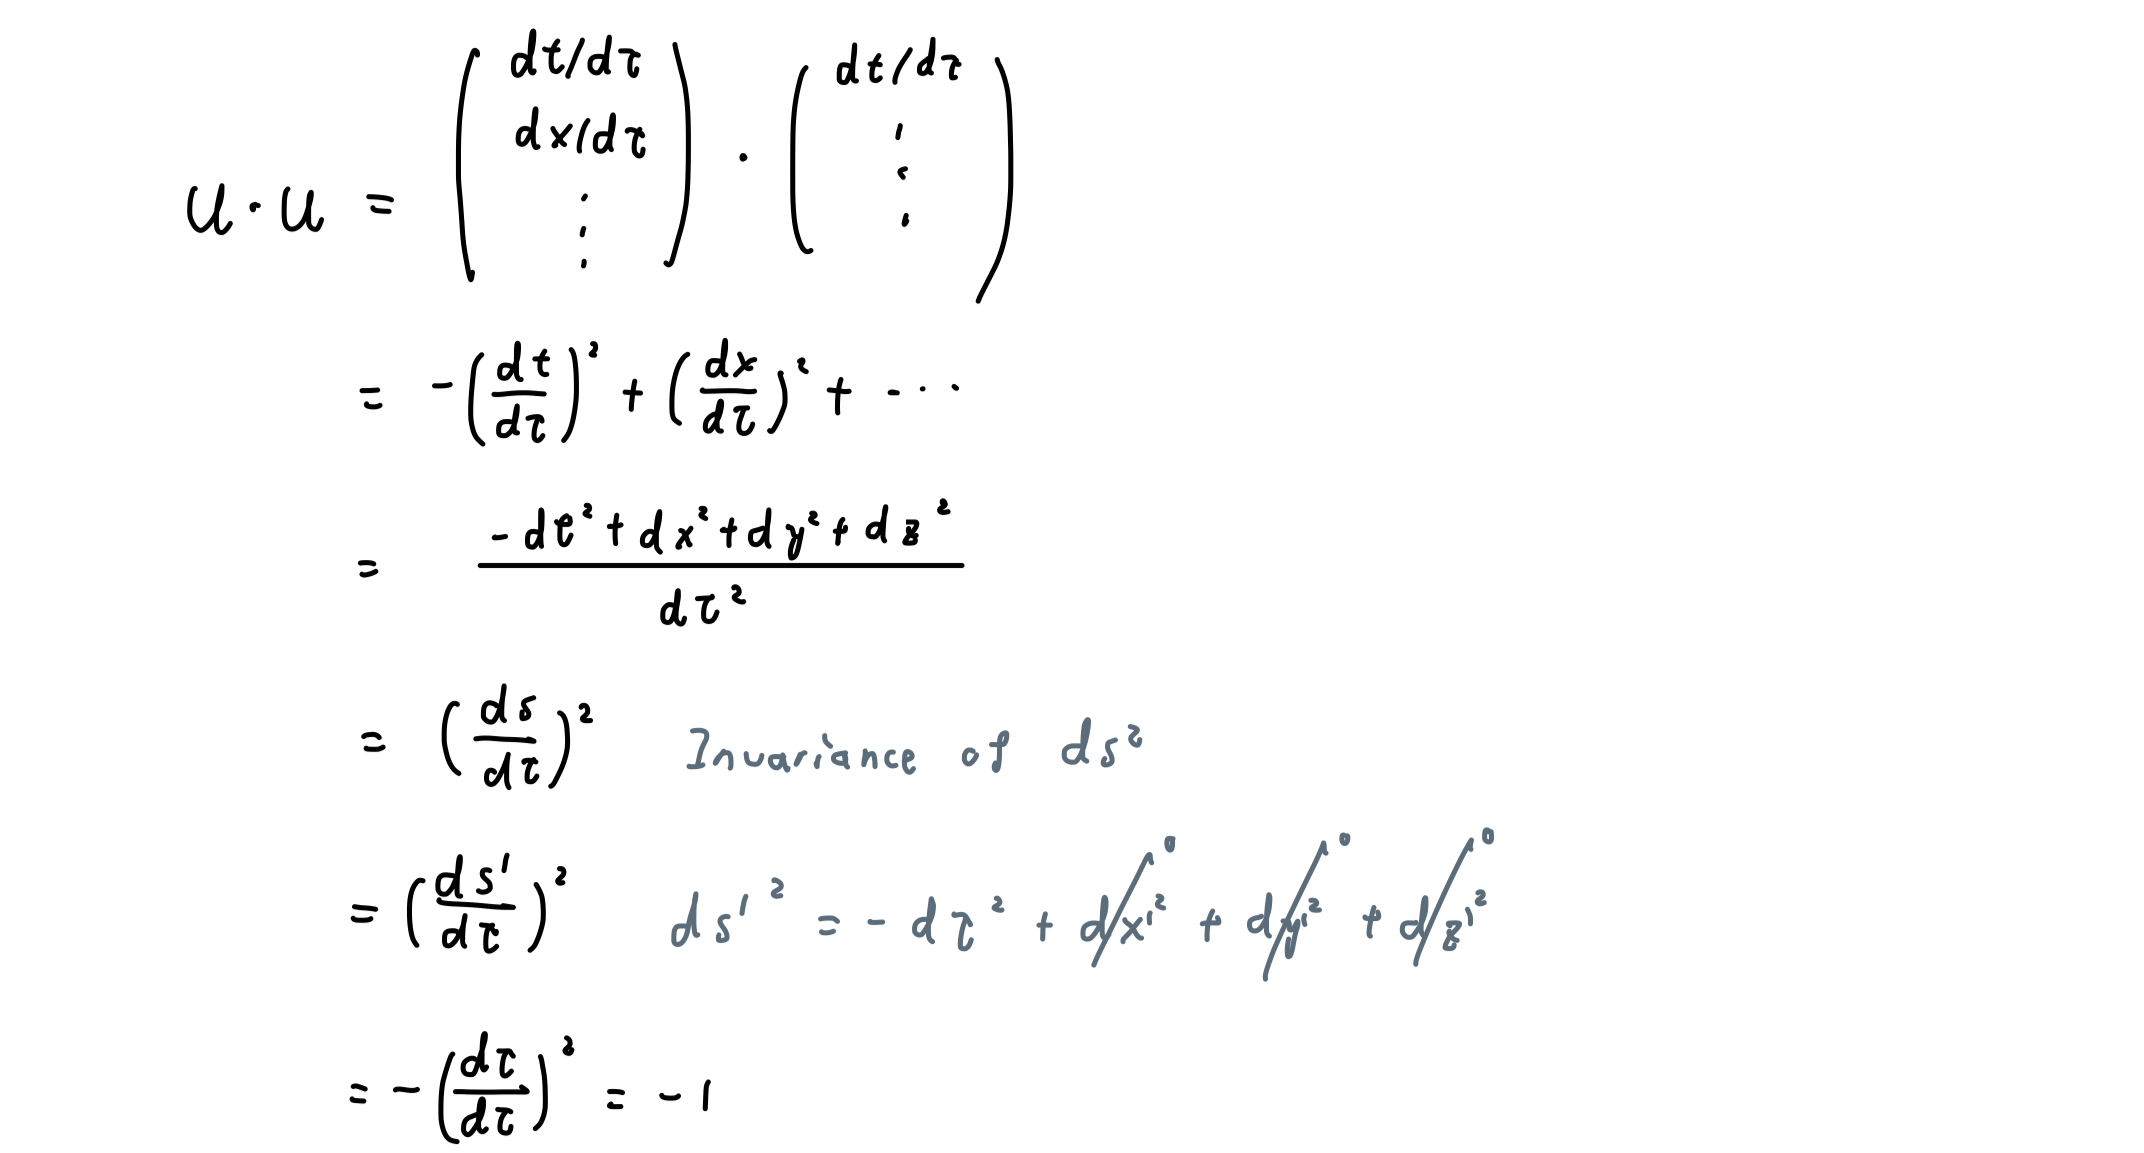 u · u = ( dt/dτ dx/dτ ⋮ ) · ( dt/dτ ⋮ )
= -(dt/dτ)² + (dx/dτ)² + ···
= (-dt² + dx² + dy² + dz²)/dτ²
= (ds/dτ)² Invariance of ds²
= (ds'/dτ)² ds'² = - dτ² + dx'² 0 + dy'² 0 + dz'² 0
= -(dτ/dτ)² = -1